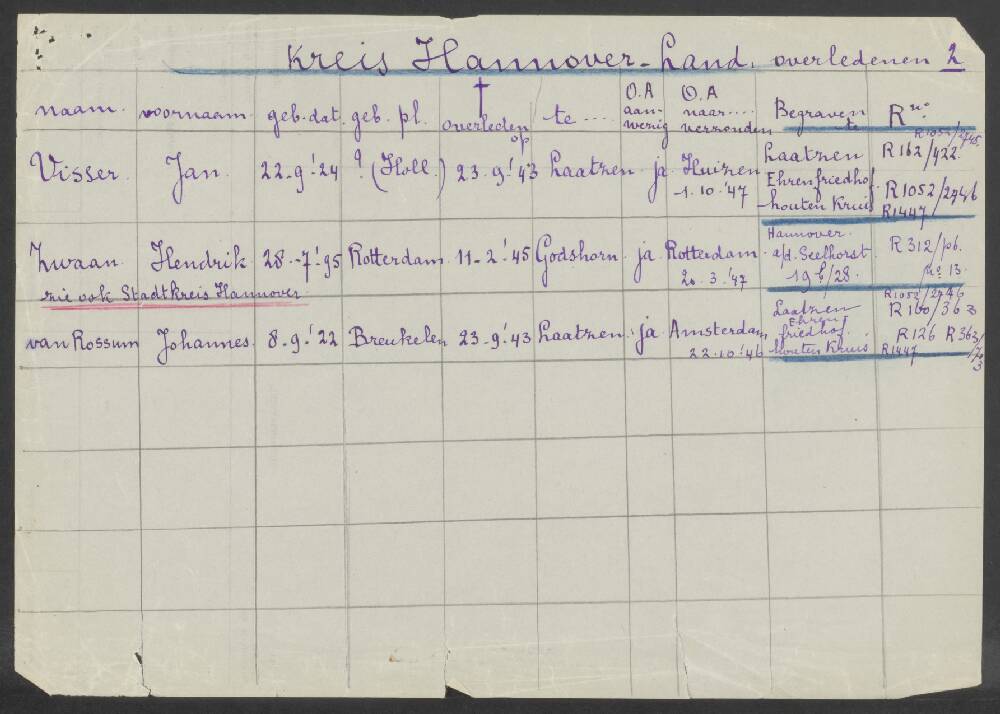 Kreis Hannover-Land. overledenen 2
naam. voornaam. geb. dat. geb. pl. † overleden op te .... O.A aanwezig O.A naar.... verzonden Begraven te R no.
R1052/2745
Visser. Jan. 22-9-'24 ? (Holl.) 23-9-'43 Laatzen ja Huizen Laatzen R 162/422.
1.10.'47 Ehrenfriedhof. R1052/2946
houten Kruis R1447
Zwaan. Hendrik 28-7-'95 Rotterdam. 11-2-'45 Godshorn ja Rotterdam. Hannover. R 312/
20.3.'47 a/d. Seelhorst no 13.
19 /28.
zie ook Stadtkreis Hannover
R1052/2946
van Rossum Johannes. 8-9-'22 Breukelen 23-9-'43 Laatzen. ja Amsterdam Laatzen R 160/363
22.10.'46 Ehrenfriedhof. R126 R363/
houten Kruis R1447